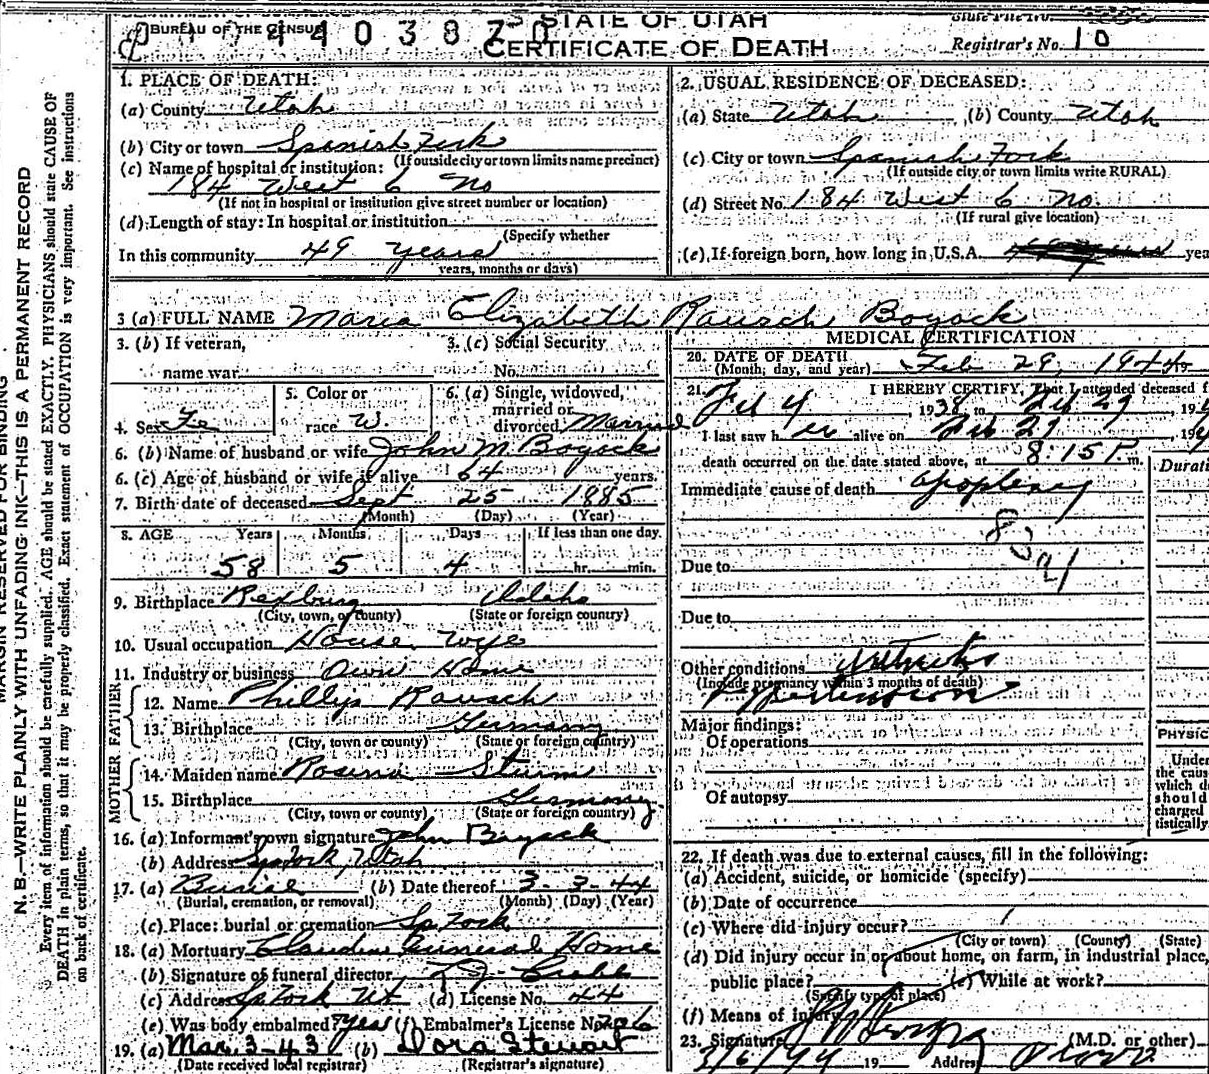 BUREAU OF THE CENSUS
STATE OF UTAH
CERTIFICATE OF DEATH
State File No.
Registrar's No. 10
MARGIN RESERVED FOR BINDING
N. B.—WRITE PLAINLY WITH UNFADING INK—THIS IS A PERMANENT RECORD
Every item of information should be carefully supplied. AGE should be stated EXACTLY. PHYSICIANS should state CAUSE OF
DEATH in plain terms, so that it may be properly classified. Exact statement of OCCUPATION is very important. See instructions
on back of certificate.
1. PLACE OF DEATH:
(a) County Utah
(b) City or town Spanish Fork
(If outside city or town limits name precinct)
(c) Name of hospital or institution:
184 West 6 No
(If not in hospital or institution give street number or location)
(d) Length of stay: In hospital or institution
(Specify whether
In this community 49 years
years, months or days)
2. USUAL RESIDENCE OF DECEASED:
(a) State Utah, (b) County Utah
(c) City or town Spanish Fork
(If outside city or town limits write RURAL)
(d) Street No. 184 West 6 No.
(If rural give location)
(e) If foreign born, how long in U.S.A. yea
3 (a) FULL NAME Maria Elizabeth Rausch Boyack
3. (b) If veteran,
name war
3. (c) Social Security
No.
4. Sex Fe
5. Color or
race W.
6. (a) Single, widowed,
married or
divorced, Married
6. (b) Name of husband or wife John M Boyack
6. (c) Age of husband or wife if alive 64 years.
7. Birth date of deceased Sept 25 1885
(Month) (Day) (Year)
8. AGE Years Months Days If less than one day.
58 5 4 hr. min.
9. Birthplace Rexburg Idaho
(City, town, or county) (State or foreign country)
10. Usual occupation House Wife
11. Industry or business Own Home
FATHER
12. Name Phillip Rausch
13. Birthplace Germany
(City, town or county) (State or foreign country)
MOTHER
14. Maiden name Rosina Sturm
15. Birthplace Germany
(City, town or county) (State or foreign country)
16. (a) Informant's own signature John Boyack
(b) Address Sp Fork, Utah
17. (a) Burial (b) Date thereof 3-3-44
(Burial, cremation, or removal) (Month) (Day) (Year)
(c) Place: burial or cremation Sp Fork
18. (a) Mortuary Claudin Funeral Home
(b) Signature of funeral director
(c) Address Sp Fork Ut (d) License No. 44
(e) Was body embalmed? Yes (f) Embalmer's License No. 206
19. (a) Mar. 3-43 (b) Dora Stewart
(Date received local registrar) (Registrar's signature)
MEDICAL CERTIFICATION
20. DATE OF DEATH Feb 29, 1944
(Month, day, and year)
21. I HEREBY CERTIFY, That I attended deceased f
Feb 4, 1938, to Feb 29, 194
I last saw her alive on Feb 29, 194
death occurred on the date stated above, at 8:15 P. m.
Durati
Immediate cause of death apoplexy
Due to
Due to
Other conditions Arthritis
(Include pregnancy within 3 months of death)
Hypertension
Major findings:
Of operations
Of autopsy
PHYSIC
Under
the caus
which d
should
charged
tistically
22. If death was due to external causes, fill in the following:
(a) Accident, suicide, or homicide (specify)
(b) Date of occurrence
(c) Where did injury occur?
(City or town) (County) (State)
(d) Did injury occur in or about home, on farm, in industrial place,
public place? (e) While at work?
(Specify type of place)
(f) Means of injury
23. Signature (M.D. or other)
3/6/44 19 Address Provo